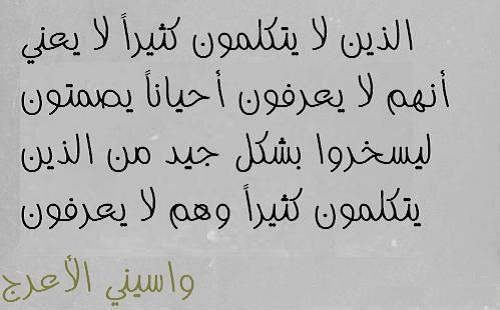 الذين لا يتكلمون كثيراً لا يعني
أنهم لا يعرفون أحياناً يصمتون
ليسخروا بشكل جيد من الذين
يتكلمون كثيراً وهم لا يعرفون
واسيني الأعرج